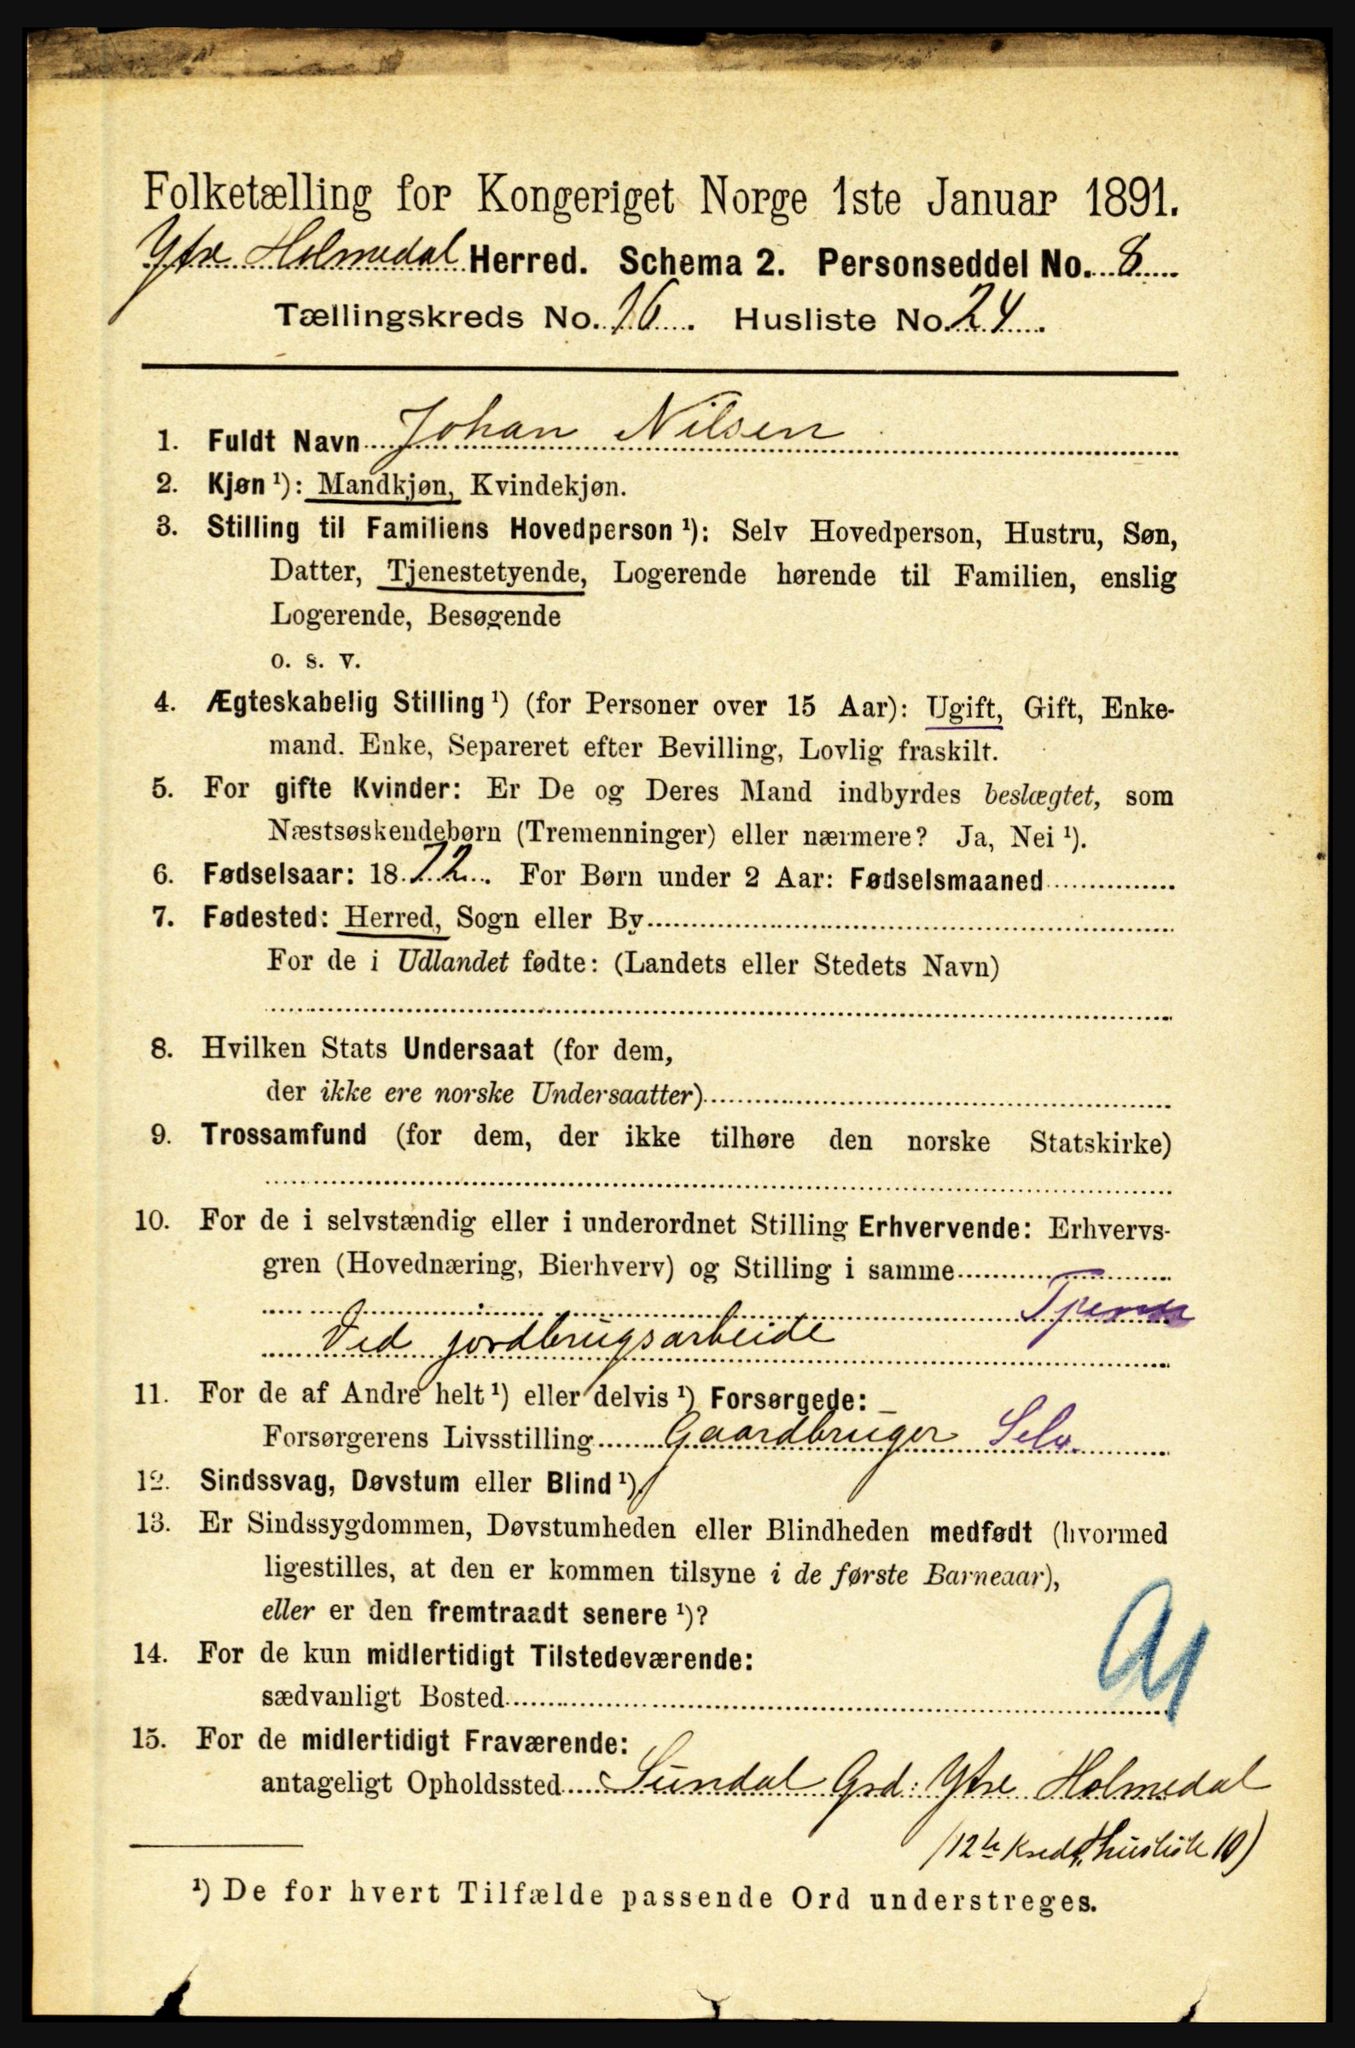 Folketælling for Kongeriget Norge 1ste Januar 1891.
Ytre Holmedal Herred. Schema 2. Personseddel No. 8
Tællingskreds No. 16. Husliste No. 24.
1. Fuldt Navn Johan Nilsen
2. Kjøn ¹): Mandkjøn, Kvindekjøn.
3. Stilling til Familiens Hovedperson ¹): Selv Hovedperson, Hustru, Søn,
Datter, Tjenestetyende, Logerende hørende til Familien, enslig
Logerende, Besøgende
o. s. v.
4. Ægteskabelig Stilling ¹) (for Personer over 15 Aar): Ugift, Gift, Enke-
mand. Enke, Separeret efter Bevilling, Lovlig fraskilt.
5. For gifte Kvinder: Er De og Deres Mand indbyrdes beslægtet, som
Næstsøskendebørn (Tremenninger) eller nærmere? Ja, Nei ¹).
6. Fødselsaar: 1872. For Børn under 2 Aar: Fødselsmaaned
7. Fødested: Herred, Sogn eller By
For de i Udlandet fødte: (Landets eller Stedets Navn)
8. Hvilken Stats Undersaat (for dem,
der ikke ere norske Undersaatter)
9. Trossamfund (for dem, der ikke tilhøre den norske Statskirke)
10. For de i selvstændig eller i underordnet Stilling Erhvervende: Erhvervs-
gren (Hovednæring, Bierhverv) og Stilling i samme
Ved jordbrugsarbeide
11. For de af Andre helt ¹) eller delvis ¹) Forsørgede:
Forsørgerens Livsstilling Gaardbruger Selv.
12. Sindssvag, Døvstum eller Blind ¹).
13. Er Sindssygdommen, Døvstumheden eller Blindheden medfødt (hvormed
ligestilles, at den er kommen tilsyne i de første Barneaar),
eller er den fremtraadt senere ¹)?
14. For de kun midlertidigt Tilstedeværende:
sædvanligt Bosted
15. For de midlertidigt Fraværende:
antageligt Opholdssted Sundal Grd: Ytre Holmedal
(12te Kreds, husliste 10)
¹) De for hvert Tilfælde passende Ord understreges.